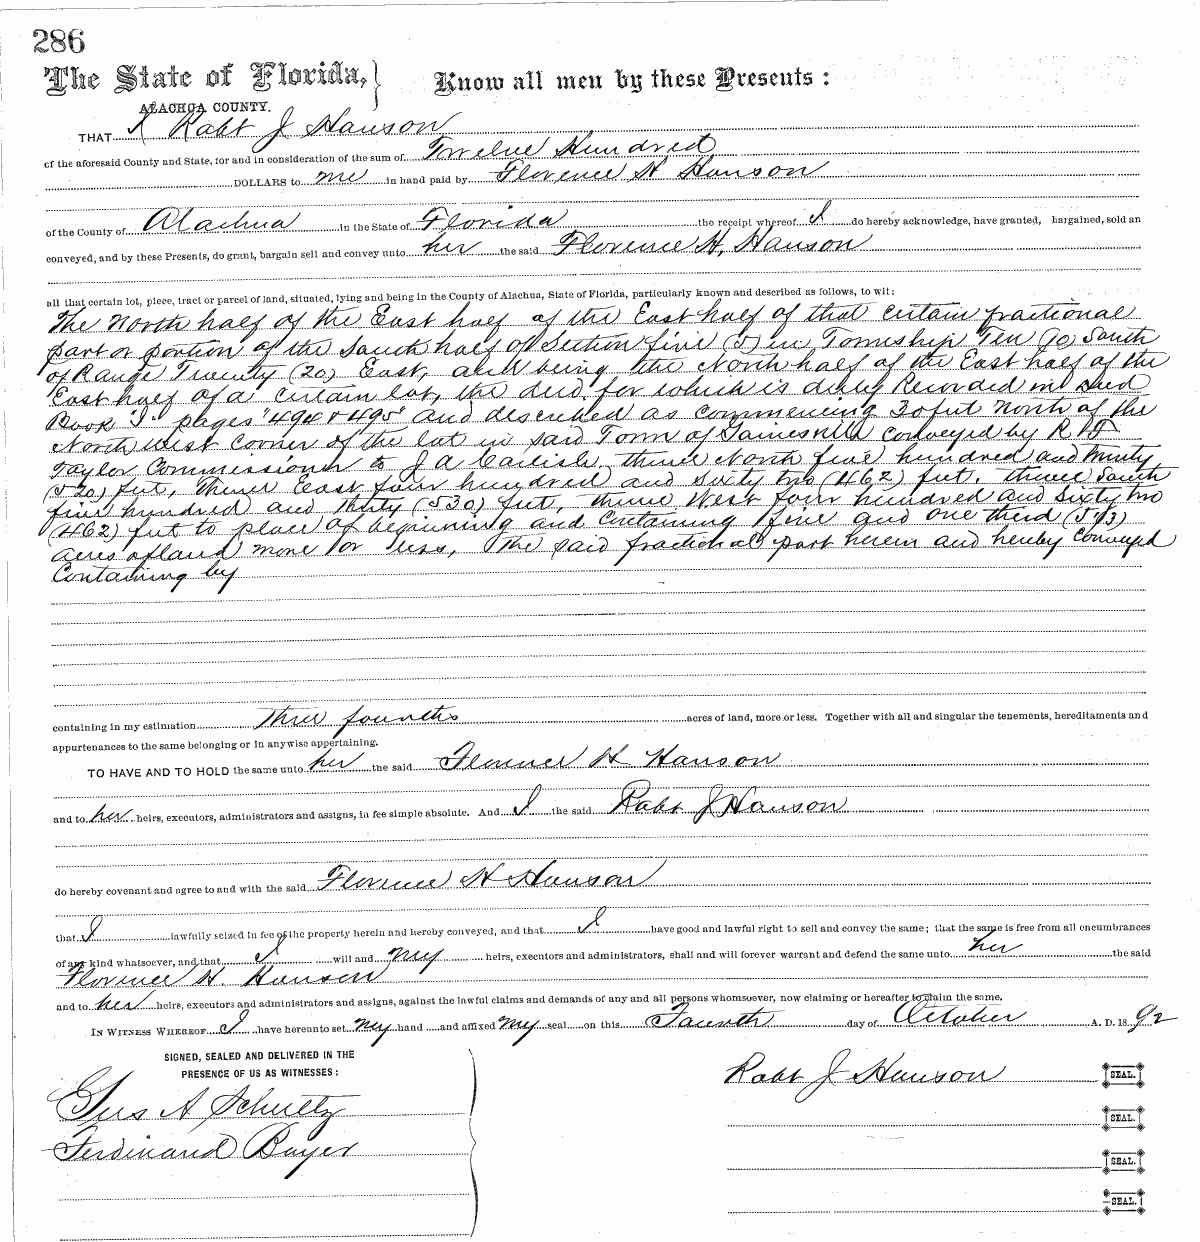 286
The State of Florida, } Know all men by these Presents :
ALACHUA COUNTY.
THAT I Robt J Hanson
of the aforesaid County and State, for and in consideration of the sum of Twelve Hundred
DOLLARS to me in hand paid by Florence H Hanson
of the County of Alachua in the State of Florida the receipt whereof I do hereby acknowledge, have granted, bargained, sold an
conveyed, and by these Presents, do grant, bargain sell and convey unto her the said Florence H, Hanson
all that certain lot, piece, tract or parcel of land, situated, lying and being in the County of Alachua, State of Florida, particularly known and described as follows, to wit:
The North half of the East half of the East half of that certain fractional
part or portion of the South half of Section five (5) in Township Ten (10) South
of Range Twenty (20) East, and being the North half of the East half of the
East half of a certain lot, the deed for which is duly Recorded in Deed
Book "I" pages "494 & 495" and described as commencing 30 feet North of the
North west corner of the lot in said Town of Gainesville conveyed by R
Taylor Commissioner to J A Carlisle, thence North five hundred and
(520) feet, thence East four hundred and sixty two (462) feet. thence South
five hundred and thirty (530) feet, thence West four hundred and Sixty two
(462) feet to place of beginning and Containing five and one third (5 1/3)
acres of land more or less, the said fractional part herein and hereby Conveyed
Containing by
containing in my estimation Three fourths acres of land, more or less. Together with all and singular the tenements, hereditaments and
appurtenances to the same belonging or in anywise appertaining.
TO HAVE AND TO HOLD the same unto her the said Florence H Hanson
and to her heirs, executors, administrators and assigns, in fee simple absolute. And I the said Robt J Hanson
do hereby covenant and agree to and with the said Florence H Hanson
that I lawfully seized in fee of the property herein and hereby conveyed, and that I have good and lawful right to sell and convey the same; that the same is free from all encumbrances
of any kind whatsoever, and that I will and my heirs, executors and administrators, shall and will forever warrant and defend the same unto her the said
Florence H. Hanson
and to her heirs, executors and administrators and assigns, against the lawful claims and demands of any and all persons whomsoever, now claiming or hereafter to claim the same.
IN WITNESS WHEREOF I have hereunto set my hand and affixed my seal on this Fourth day of October A. D. 18 92
SIGNED, SEALED AND DELIVERED IN THE
PRESENCE OF US AS WITNESSES :
Robt J Hanson SEAL.
Gus A Schultz
SEAL.
Ferdinand Bayer
SEAL.
SEAL.